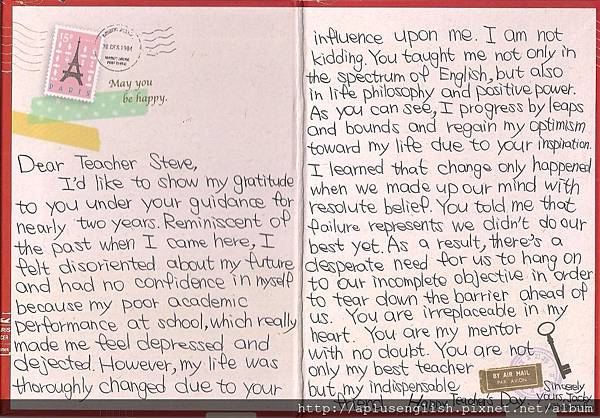 15c
PARIS
May you
be happy.
Dear Teacher Steve,
I'd like to show my gratitude
to you under your guidance for
nearly two years. Reminiscent of
the past when I came here, I
felt disoriented about my future
and had no confidence in myself
because my poor academic
performance at school, which really
made me feel depressed and
dejected. However, my life was
thoroughly changed due to your
influence upon me. I am not
kidding. You taught me not only in
the spectrum of English, but also
in life philosophy and positive power.
As you can see, I progress by leaps
and bounds and regain my optimism
toward my life due to your inspiration.
I learned that change only happened
when we made up our mind with
resolute belief. You told me that
failure represents we didn't do our
best yet. As a result, there's a
desperate need for us to hang on
to our incomplete objective in order
to tear down the barrier ahead of
us. You are irreplaceable in my
heart. You are my mentor
with no doubt. You are not
only my best teacher
but my indispensable
friend. Happy Teacher's Day.
BY AIR MAIL
PAR AVION
Sincerely
Yours,
http://aplusenglish.pixnet.net/album